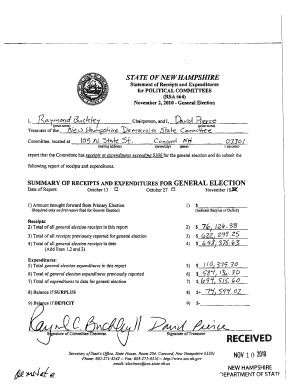 STATE OF NEW HAMPSHIRE
Statement of Receipts and Expenditures
for POLITICAL COMMITTEES
(RSA 664)
November 2, 2010 - General Election
I, Raymond Buckley Chairperson, and I, David Pierce
Treasurer of the New Hampshire Democratic State Committee
Committee, located at 105 N State St. Concord NH 03301
report that this Committee has receipts or expenditures exceeding $500 for the general election and do submit the
following report of receipts and expenditures.
SUMMARY OF RECEIPTS AND EXPENDITURES FOR GENERAL ELECTION
Date of Report: October 13 October 27 November 10
1) Amount brought forward from Primary Election 1) $
(Required only on first report filed for General Election) (indicate Surplus or Deficit)
Receipts:
2) Total of all general election receipts in this report 2) $ 76,126.38
3) Total of all general election receipts previously reported 3) $
4) Total of all general election receipts to date 4) $
(Add lines 1, 2 and 3)
Expenditures:
5) Total of general election expenditures in this report 5) $
6) Total of general election expenditures previously reported 6) $
7) Total of expenditures to date for general election 7) $
8) Balance if SURPLUS 8) $
9) Balance if DEFICIT 9) $
Raymond C. Buckley David Pierce
Signature of Committee Chairman Signature of Treasurer
RECEIVED
Secretary of State's Office, State House, Room 204, Concord, New Hampshire 03301
NOV 10 2010
NEW HAMPSHIRE
DEPARTMENT OF STATE